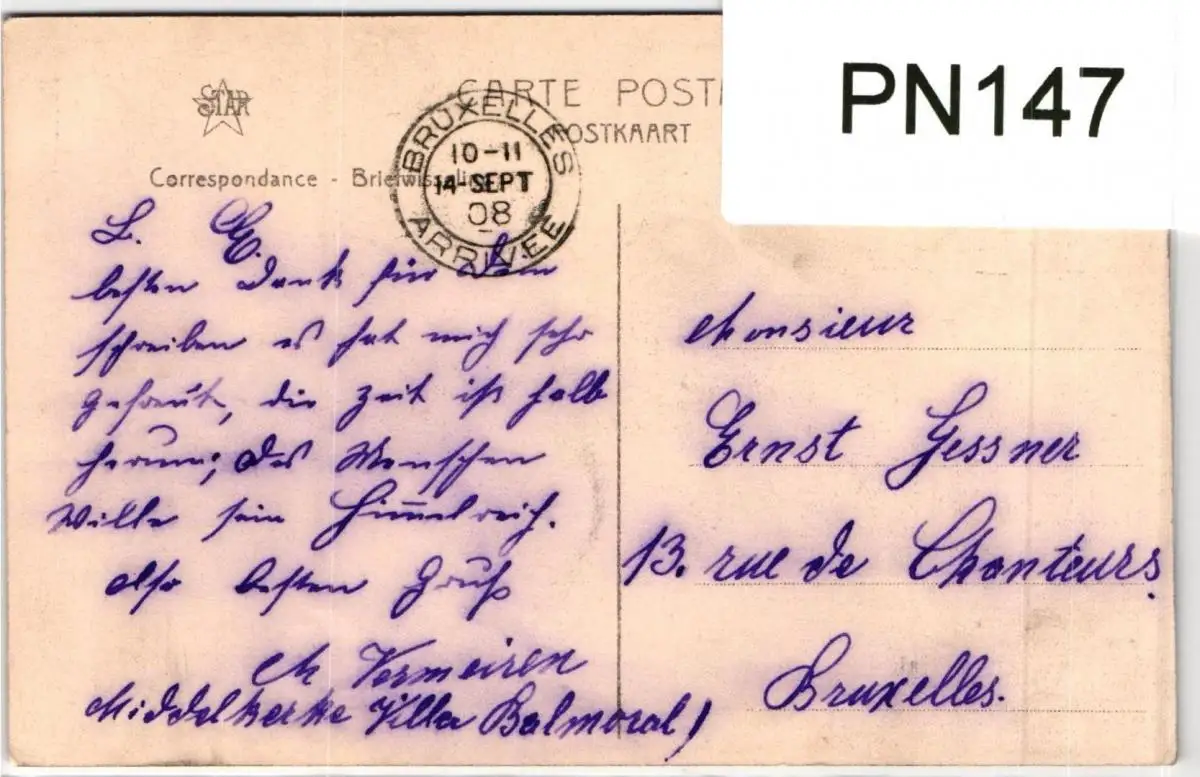 PN147
STAR
CARTE POST
POSTKAART
Correspondance - Briefwisseling
BRUXELLES
10-11
14-SEPT
08
ARRIVÉE
L. E.
besten Dank für Dein
schreiben es hat mich sehr
gefreut, die Zeit ist halb
herum; des Menschen
Wille sein Himmelreich.
also besten Gruß
M Vermeiren
Middelkerke Villa Balmoral)
Monsieur
Ernst Gessner
13. rue de Chanteurs.
Bruxelles.